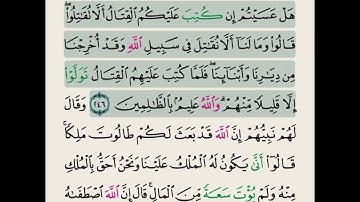 هَلْ عَسَيْتُمْ إِن كُتِبَ عَلَيْكُمُ ٱلْقِتَالُ أَلَّا تُقَٰتِلُوا۟ۖ
قَالُوا۟ وَمَا لَنَآ أَلَّا نُقَٰتِلَ فِى سَبِيلِ ٱللَّهِ وَقَدْ أُخْرِجْنَا
مِن دِيَٰرِنَا وَأَبْنَآئِنَاۖ فَلَمَّا كُتِبَ عَلَيْهِمُ ٱلْقِتَالُ تَوَلَّوْا۟
إِلَّا قَلِيلًا مِّنْهُمْۗ وَٱللَّهُ عَلِيمٌۢ بِٱلظَّٰلِمِينَ ٢٤٦ وَقَالَ
لَهُمْ نَبِيُّهُمْ إِنَّ ٱللَّهَ قَدْ بَعَثَ لَكُمْ طَالُوتَ مَلِكًاۚ
قَالُوٓا۟ أَنَّىٰ يَكُونُ لَهُ ٱلْمُلْكُ عَلَيْنَا وَنَحْنُ أَحَقُّ بِٱلْمُلْكِ
مِنْهُ وَلَمْ يُؤْتَ سَعَةً مِّنَ ٱلْمَالِۚ قَالَ إِنَّ ٱللَّهَ ٱصْطَفَىٰهُ